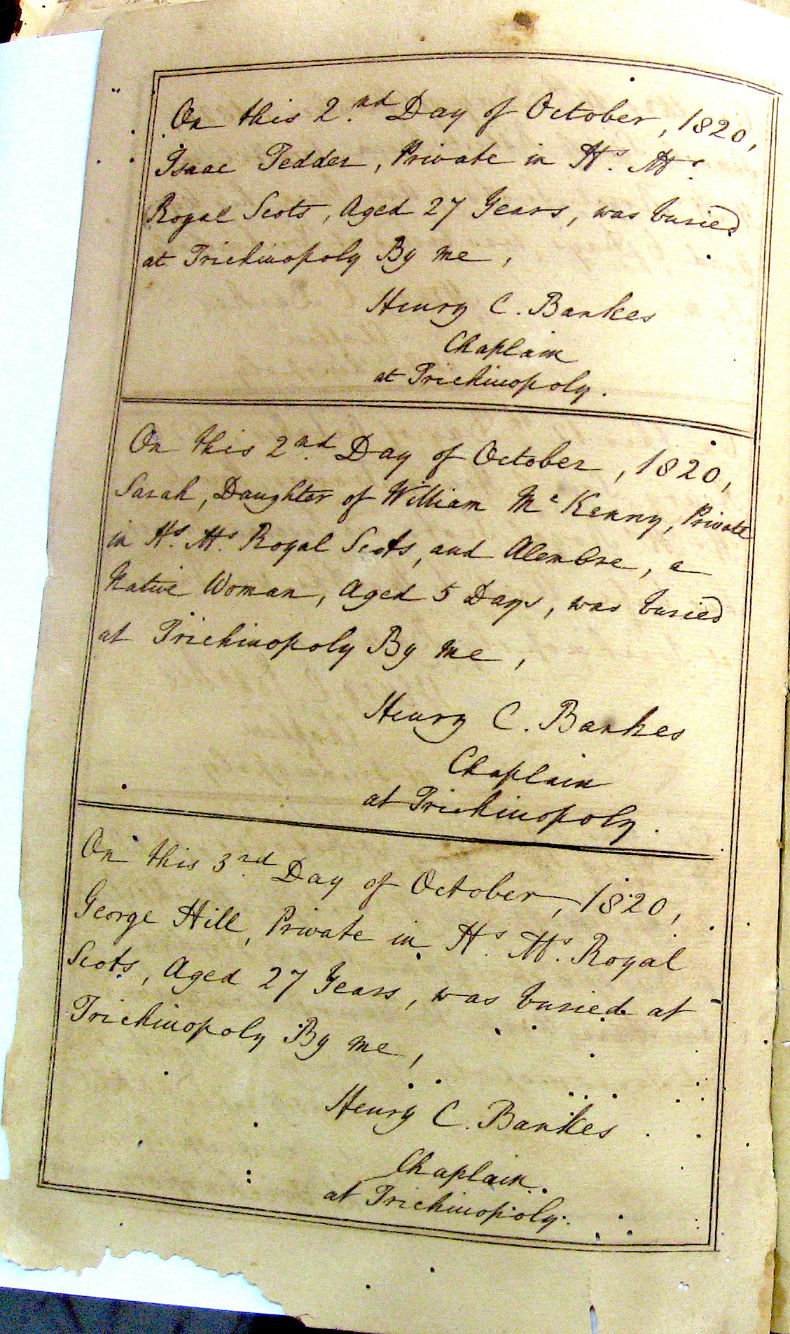 On this 2.nd Day of October, 1820,
Isaac Tedder, Private in H.s M.s
Royal Scots, Aged 27 Years, was buried
at Trichinopoly By me,
Henry C. Bankes
Chaplain
at Trichinopoly.
On this 2.nd Day of October, 1820,
Sarah, Daughter of William Mc Kenny, Private
in H.s M.s Royal Scots, and Alembre, a
Native Woman, Aged 5 Days, was buried
at Trichinopoly By me,
Henry C. Bankes
Chaplain
at Trichinopoly.
On this 3.rd Day of October, 1820,
George Hill, Private in H.s M.s Royal
Scots, Aged 27 Years, was buried at
Trichinopoly By me,
Henry C. Bankes
Chaplain.
at Trichinopoly.